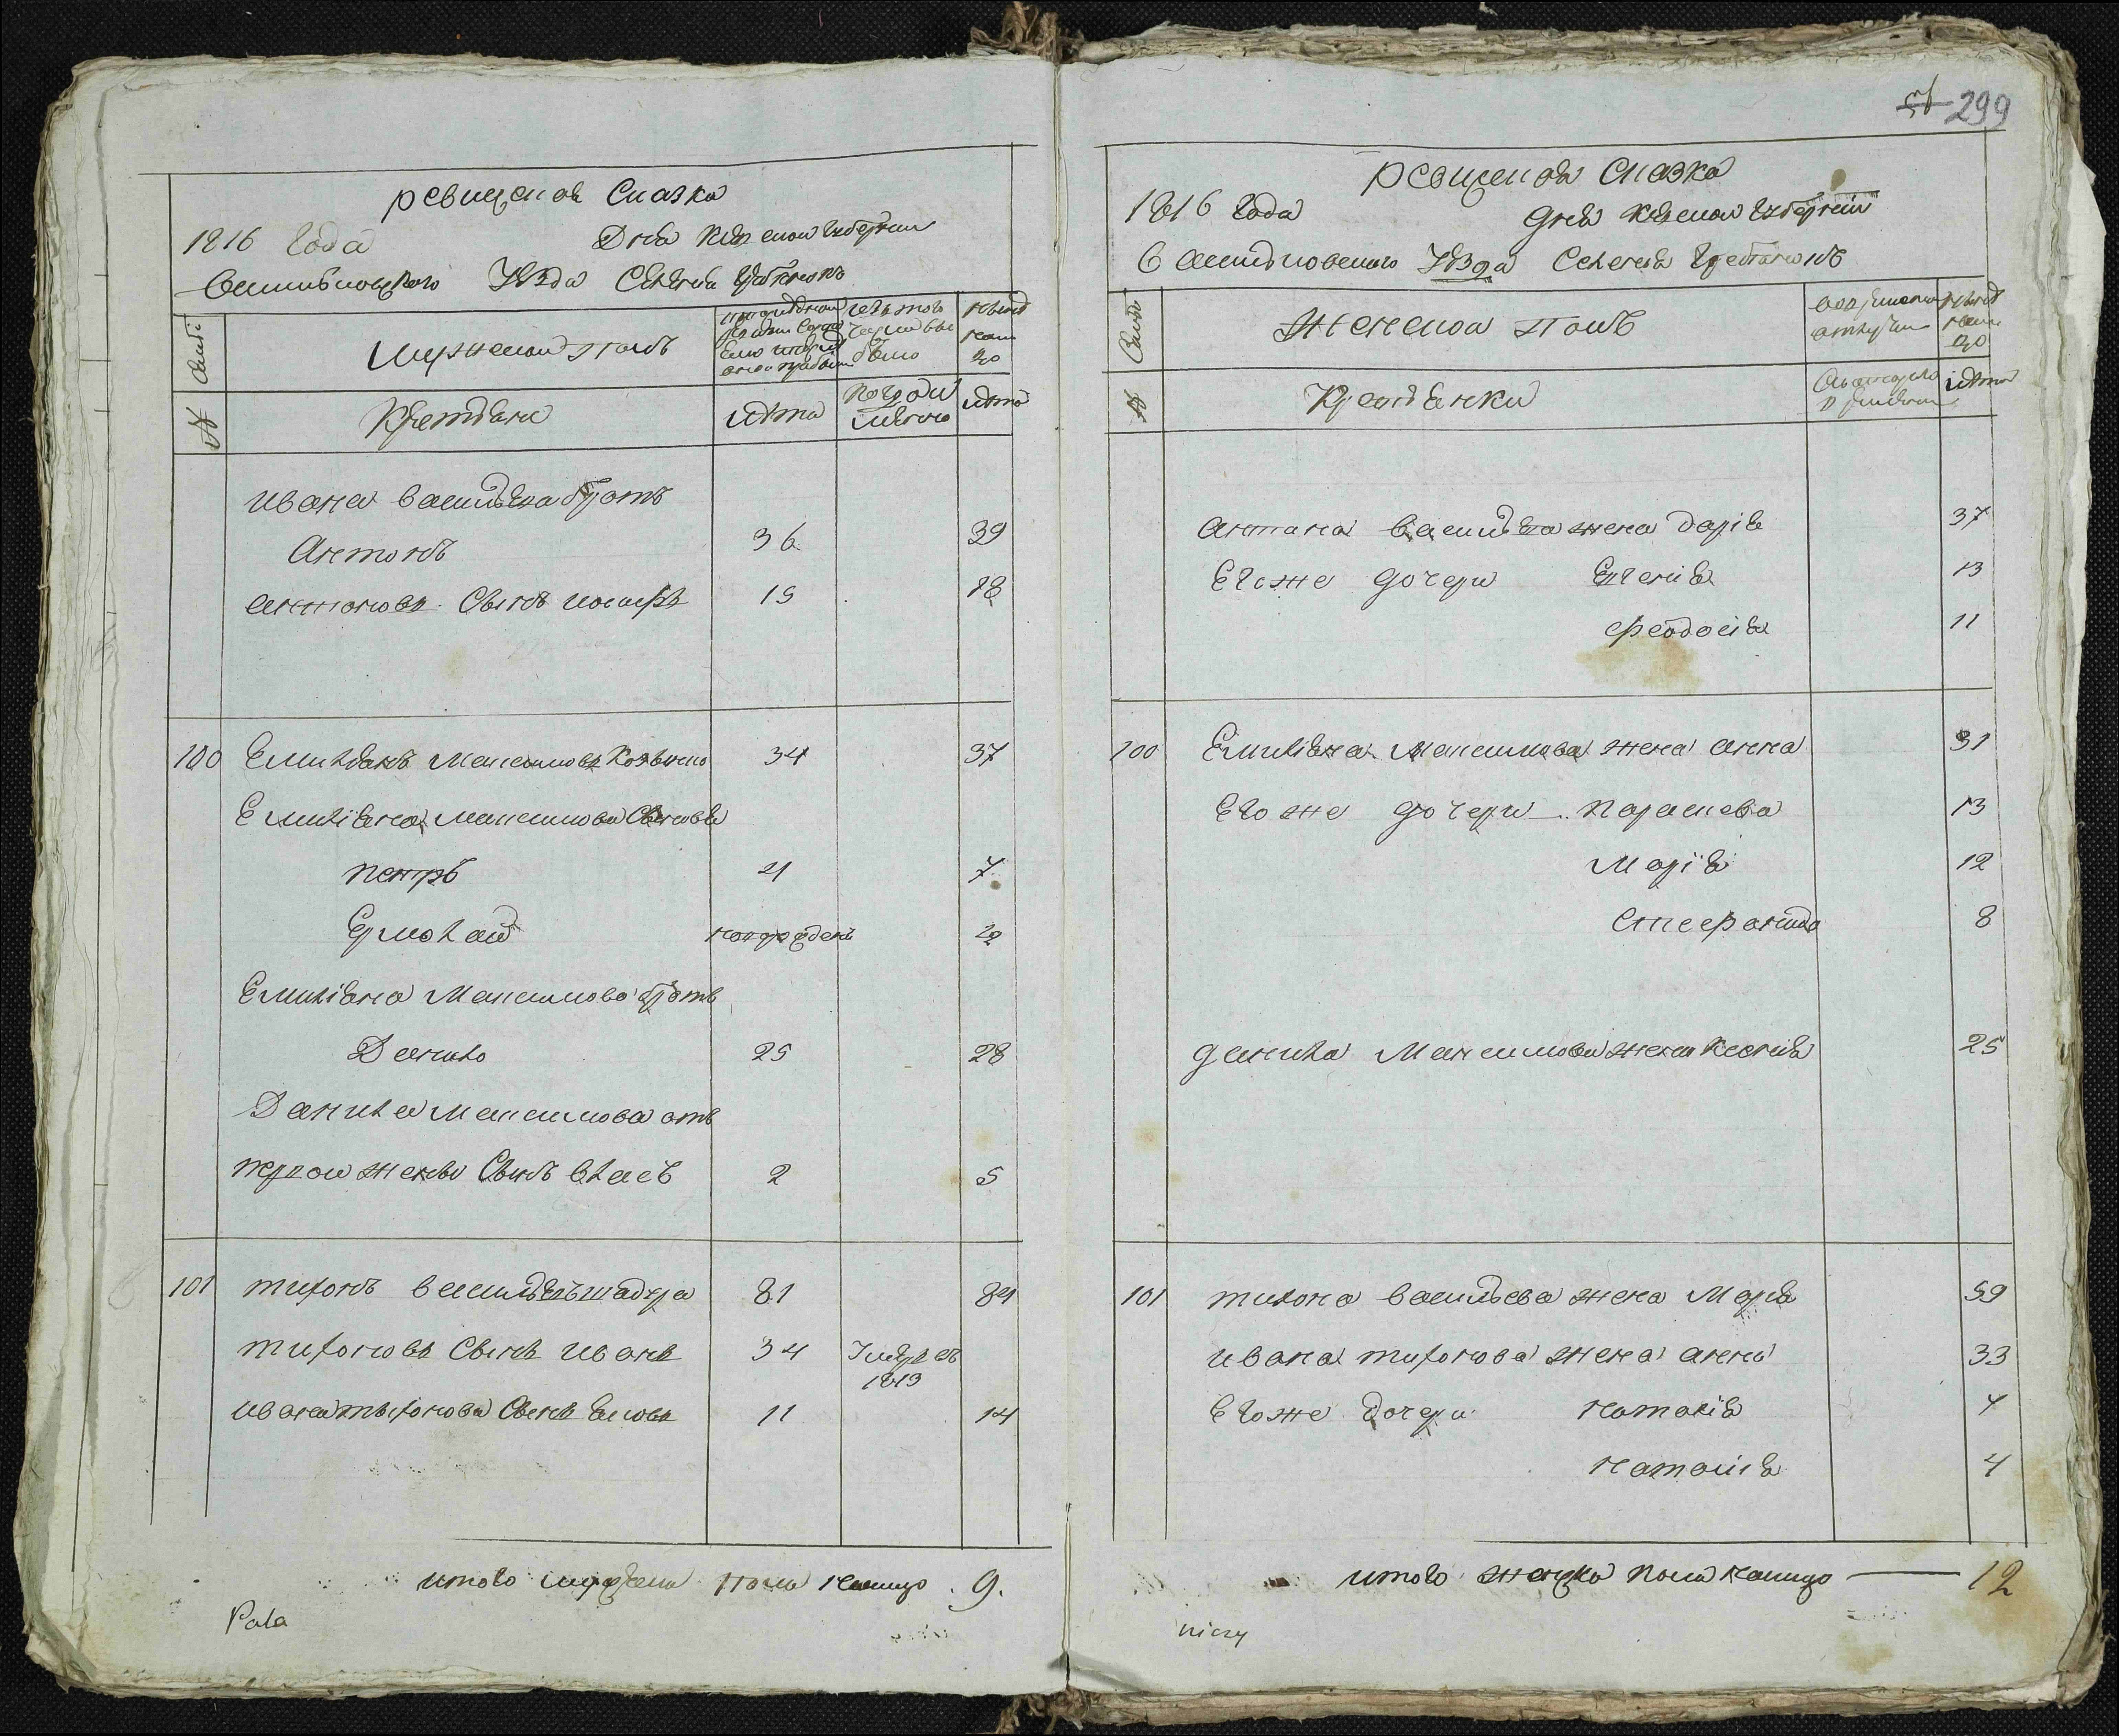 ревизская Сказка
1816 года Дня Киевской губернии
Васильковского Уезда Селения Гребенокъ
Семьи
мужеской полъ
изъ того числа выбыло
ныне на лицо
№
Крестьяне
лѣта
когда именно
лѣта
Ивана Васильева братъ
Антонъ 36 39
Антоновъ Сынъ Иосифъ 15 18
100 Емилианъ Максимовъ 34 37
Емилиана Максимова Сыновья
Петръ 4 7
Ермолай новорожденъ 2
Емилиана Максимова братъ
Данило 25 28
Данила Максимова отъ
первой жены Сынъ Власъ 2 5
101 Тихонъ Васильевъ 81 84
Тихоновъ Сынъ Иванъ 34 Умеръ въ 1813
Ивана Тихонова Сынъ 11 14
итого мужеска пола налицо 9.
Pala
299
ревизская Сказка
1816 года Дня Киевской губернии
Васильковского Уезда Селения Гребенокъ
Семьи
Женской полъ
ныне на лицо
№
Крестьянки
лѣта
Антона Васильева жена Дарія 37
Егоже дочери Евгенія 13
Феодосія 11
100 Емиліана Максимова жена Анна 31
Егоже дочери Параскева 13
Марія 12
Стефанида 8
Данила Максимова жена Ксенія 25
101 Тихона Васильева жена Марія 59
Ивана Тихонова жена Анна 33
Егоже дочери Наталія 7
Наталія 4
итого женска пола налицо 12
niczy